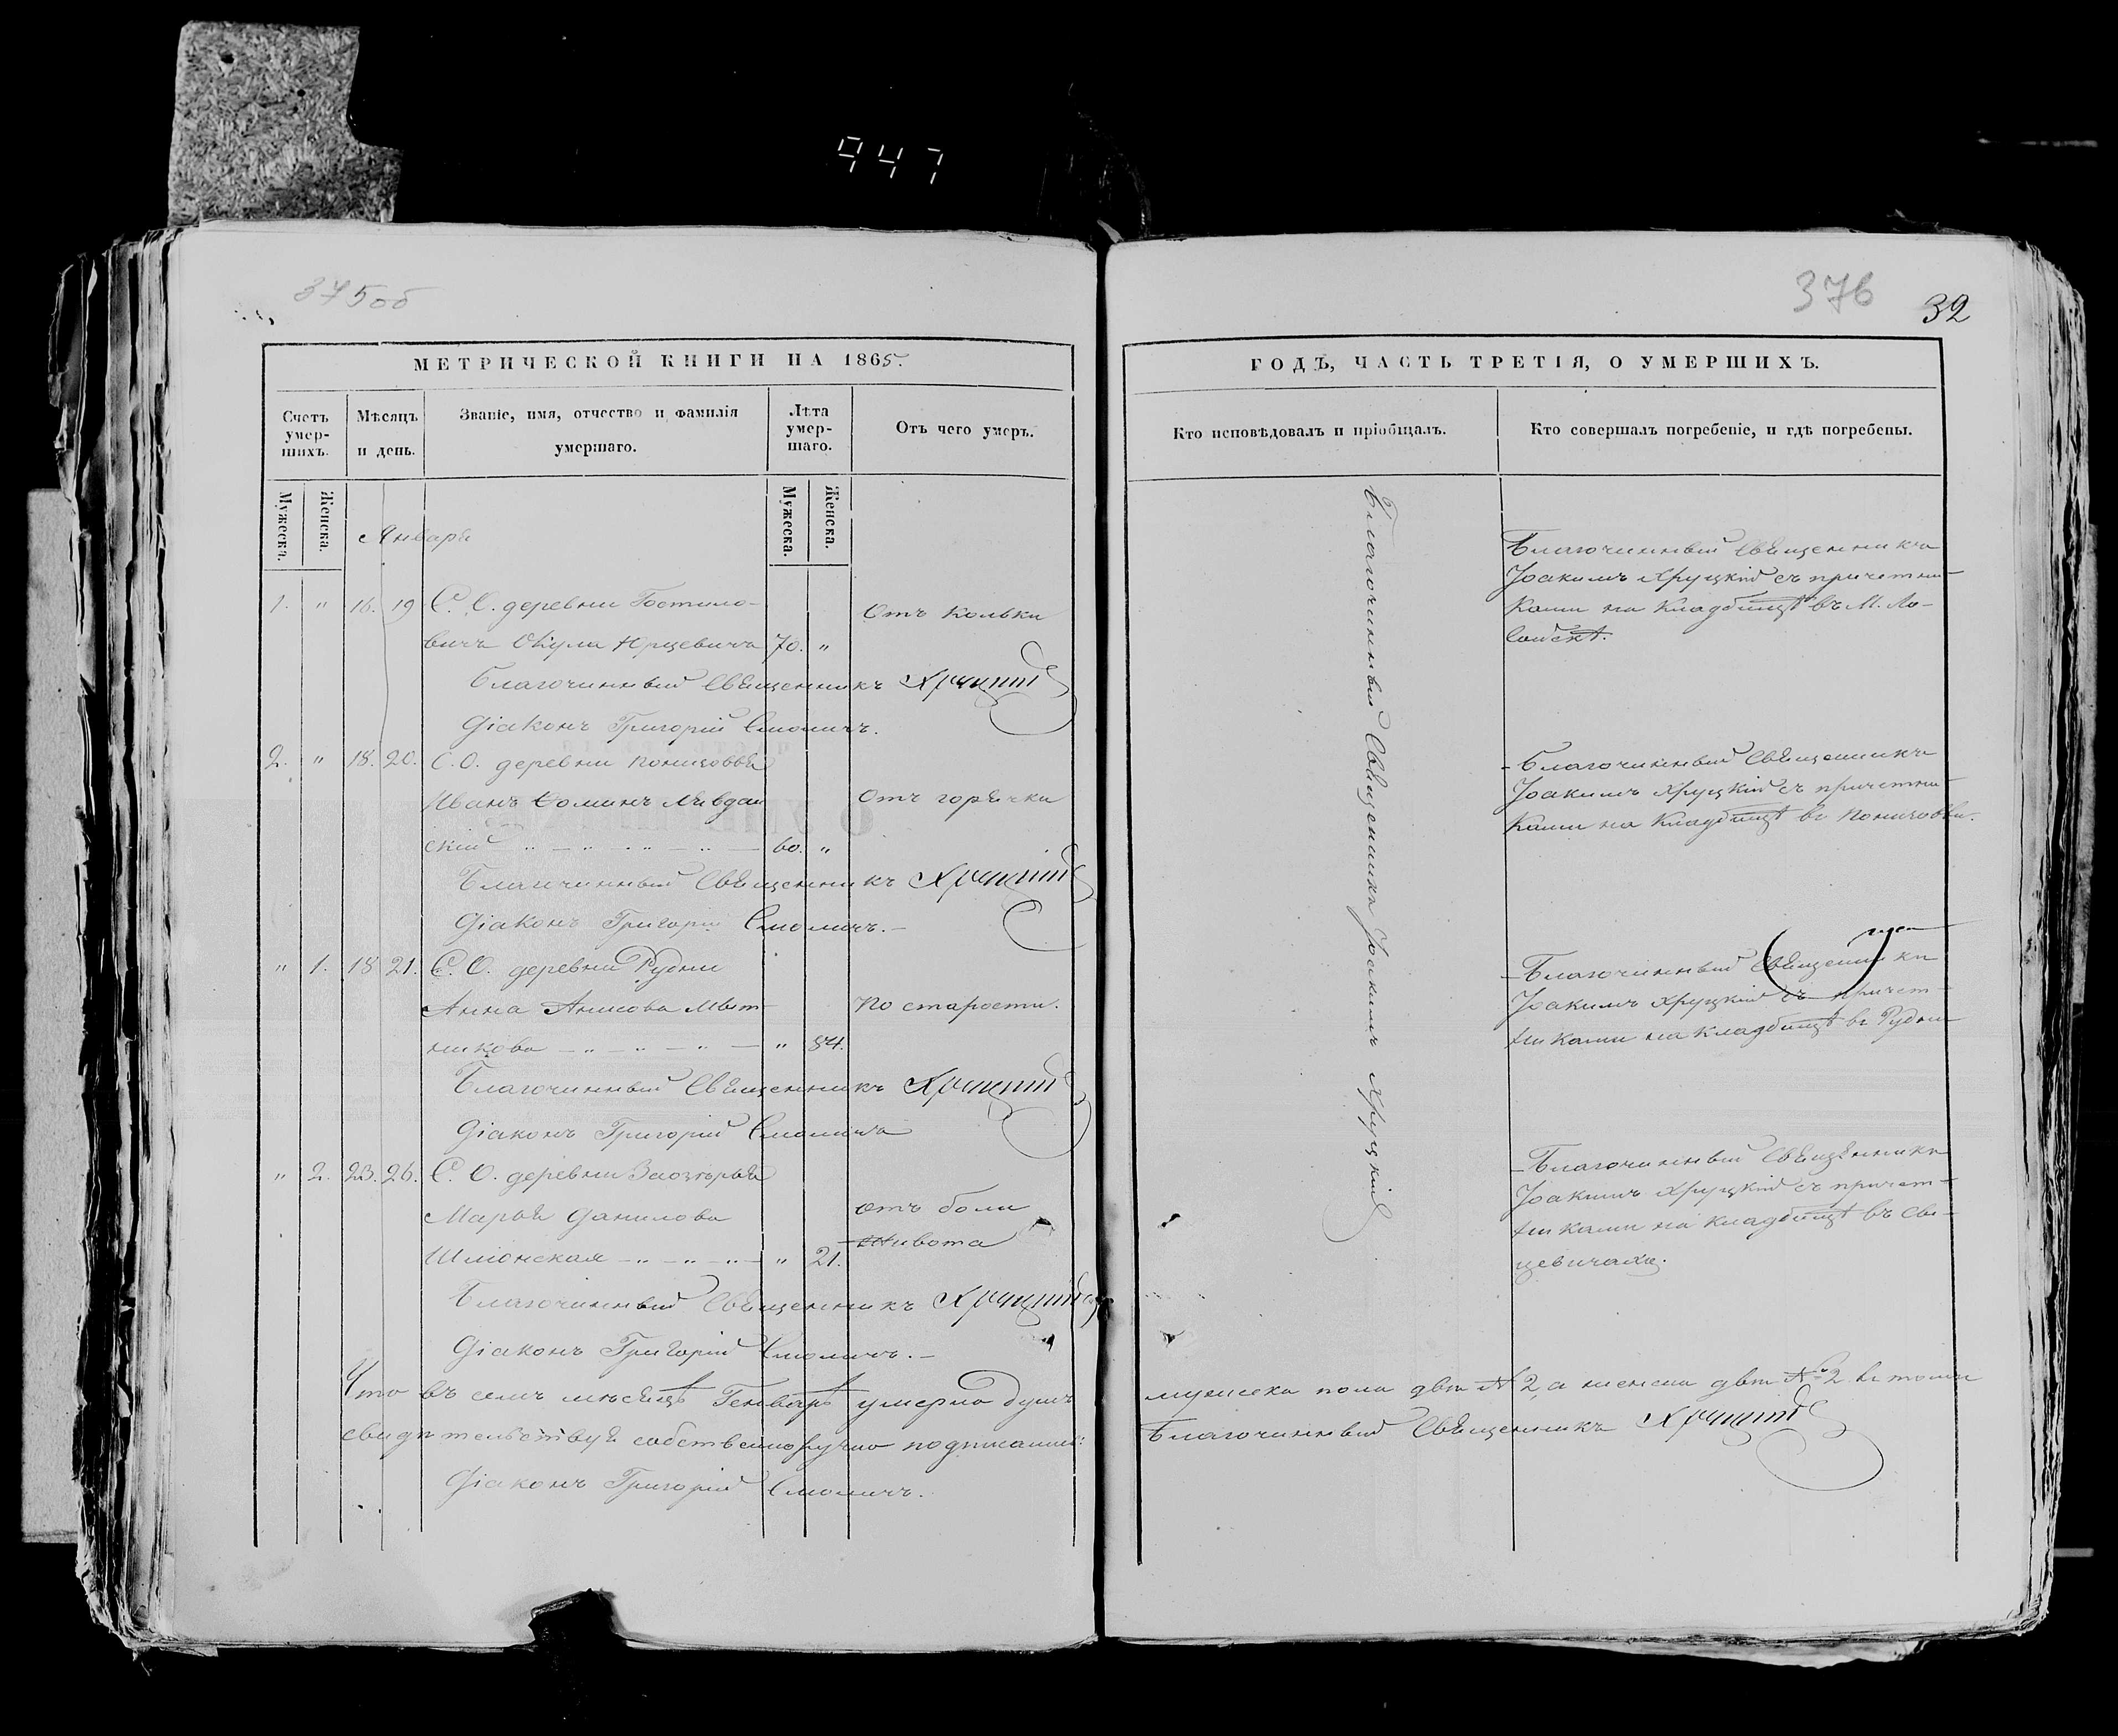 447
375об
376
32
МЕТРИЧЕСКОЙ КНИГИ НА 1865.
Счетъ умер-шихъ.
Мѣсяцъ и день.
Званіе, имя, отчество и фамилія
умершаго.
Лѣта умер-шаго.
Отъ чего умеръ.
Мужеска.
Женска.
Мужеска.
Женска.
Январь
1. " 16. 19 С. О. деревни Гостило-
вичъ Юрцевичъ 70. "
Отъ кольки
Благочинный Священникъ Хруцкій
Діаконъ Григорій Смоличъ.
2. " 18. 20. С. О. деревни Понизовья
Иванъ Ѳоминъ Отъ горячки
скій 60. "
Благочинный Священникъ Хруцкій
Діаконъ Григорій Смоличъ.
" 1. 18 21. С. О. деревни Рудни
Анна По старости.
никова " 84.
Благочинный Священникъ Хруцкій
Діаконъ Григорій Смоличъ
" 2. 23. 26. С. О. деревни Заозѣрья
Марья Данилова отъ боли
Шмонская " 21. живота
Благочинный Священникъ Хруцкій
Діаконъ Григорій Смоличъ.
Что въ семъ мѣсяцѣ Генварѣ умерло душъ
свидѣтельствуя собственноручно подписались:
Діаконъ Григорій Смоличъ.
ГОДЪ, ЧАСТЬ ТРЕТІЯ, О УМЕРШИХЪ.
Кто исповѣдовалъ и пріобщалъ.
Кто совершалъ погребеніе, и гдѣ погребены.
Благочинный Священникъ Іоакимъ Хруцкій
Благочинный Священникъ
Іоакимъ Хруцкій съ причетни-
ками на кладбищѣ въ М.
Благочинный Священникъ
Іоакимъ Хруцкій съ причетни-
ками на кладбищѣ въ Понизовьи.
Благочинный Священникъ
Іоакимъ Хруцкій съ причет-
никами на кладбищѣ въ Рудни
Благочинный Священникъ
Іоакимъ Хруцкій съ причет-
никами на кладбищѣ въ Сви-
цевичахъ.
мужеска пола двѣ № 2, а женска двѣ № 2 въ томъ
Благочинный Священникъ Хруцкій